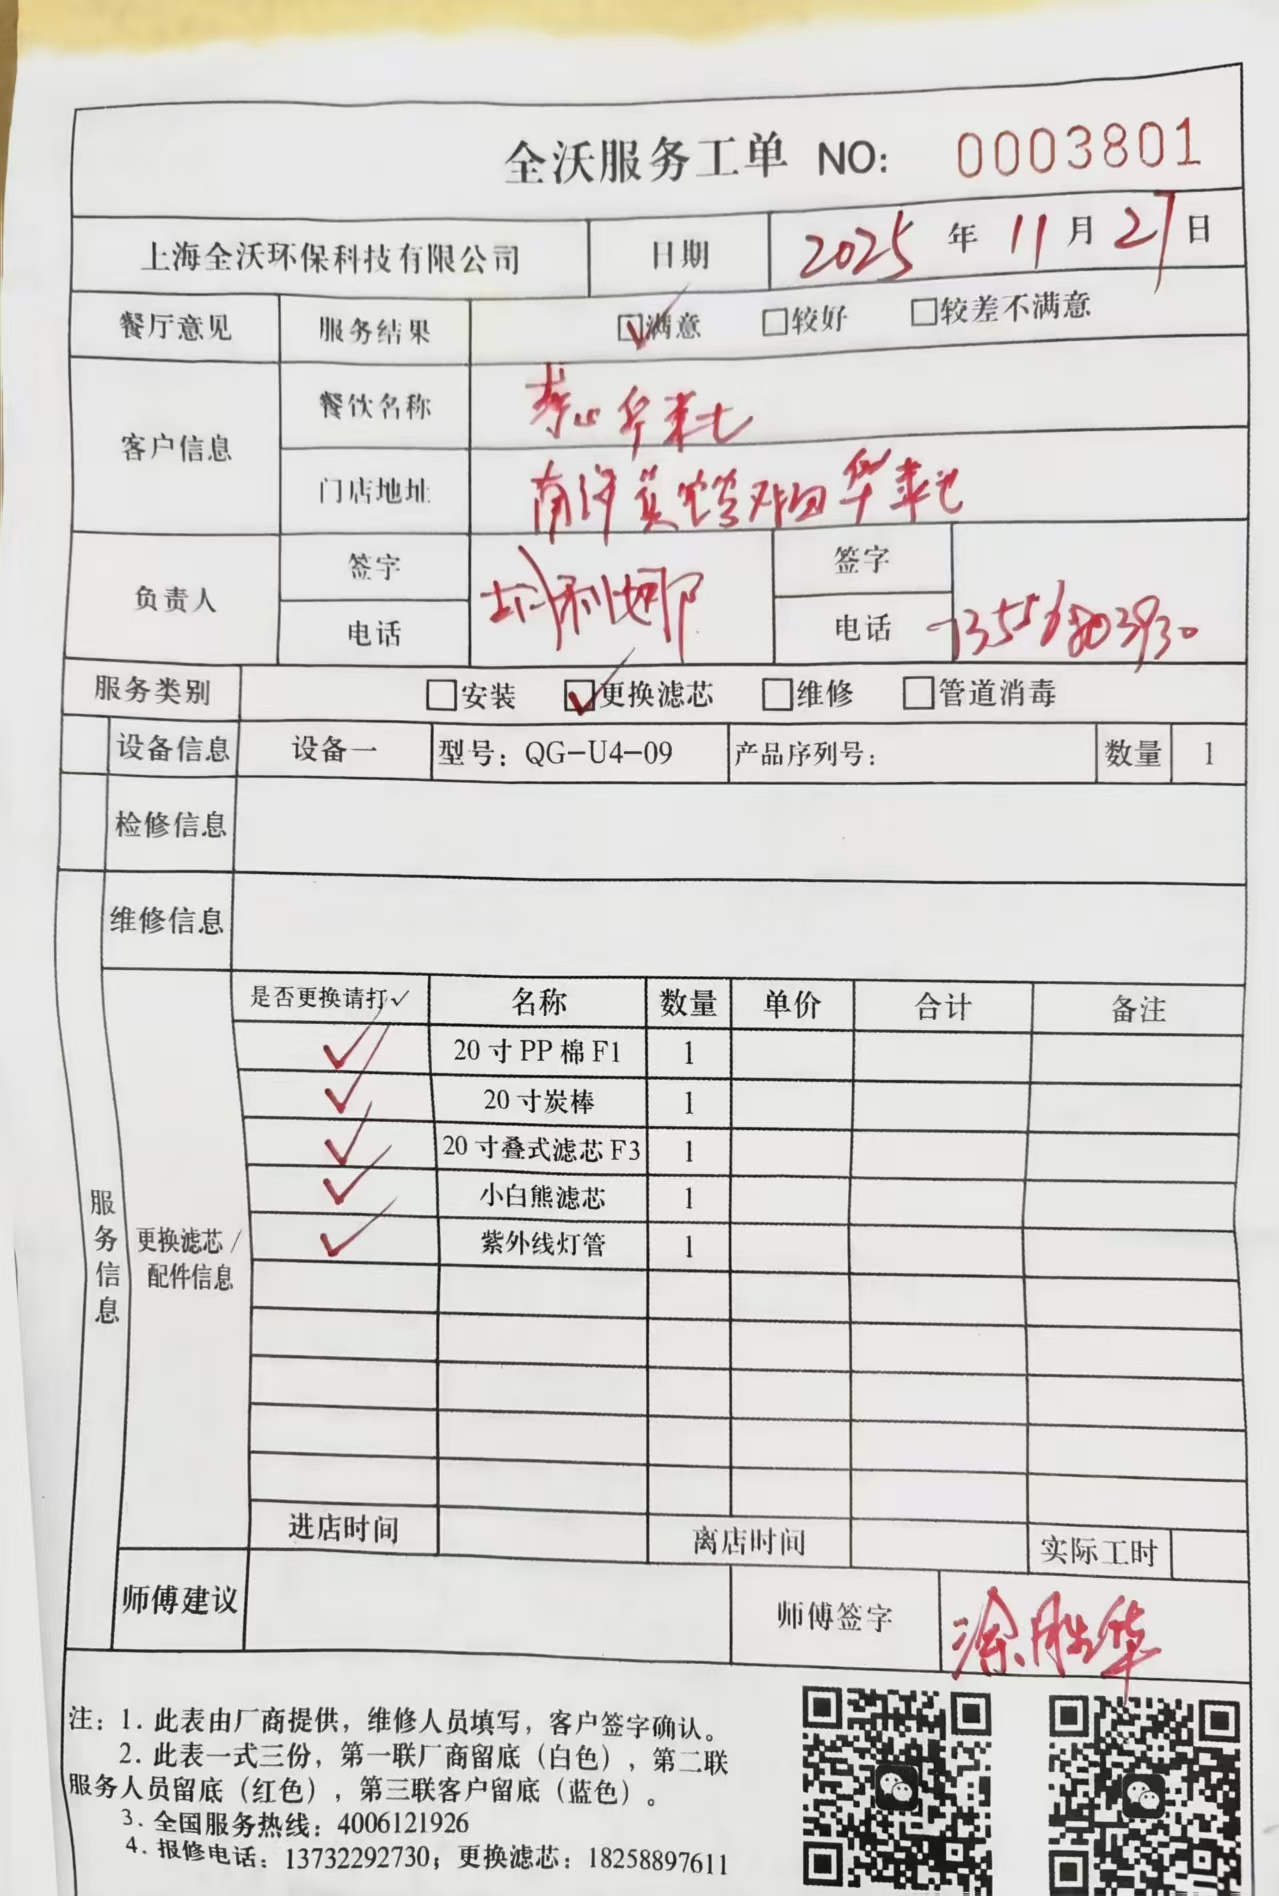 全沃服务工单 NO: 0003801
上海全沃环保科技有限公司 日期 2025 年 11 月 27 日
餐厅意见 服务结果 ☑满意 □较好 □较差不满意
客户信息 餐饮名称 华莱士
门店地址 南 对面华莱士
负责人 签字 利娜 签字
电话 电话 13556803930
服务类别 □安装 ☑更换滤芯 □维修 □管道消毒
设备信息 设备一 型号：QG-U4-09 产品序列号： 数量 1
检修信息
维修信息
服务信息
更换滤芯/
配件信息
是否更换请打✓ 名称 数量 单价 合计 备注
✓ 20寸PP棉F1 1
✓ 20寸炭棒 1
✓ 20寸叠式滤芯F3 1
✓ 小白熊滤芯 1
✓ 紫外线灯管 1
进店时间 离店时间 实际工时
师傅建议 师傅签字 涂胜华
注：1. 此表由厂商提供，维修人员填写，客户签字确认。
2. 此表一式三份，第一联厂商留底（白色），第二联
服务人员留底（红色），第三联客户留底（蓝色）。
3. 全国服务热线：4006121926
4. 报修电话：13732292730；更换滤芯：18258897611